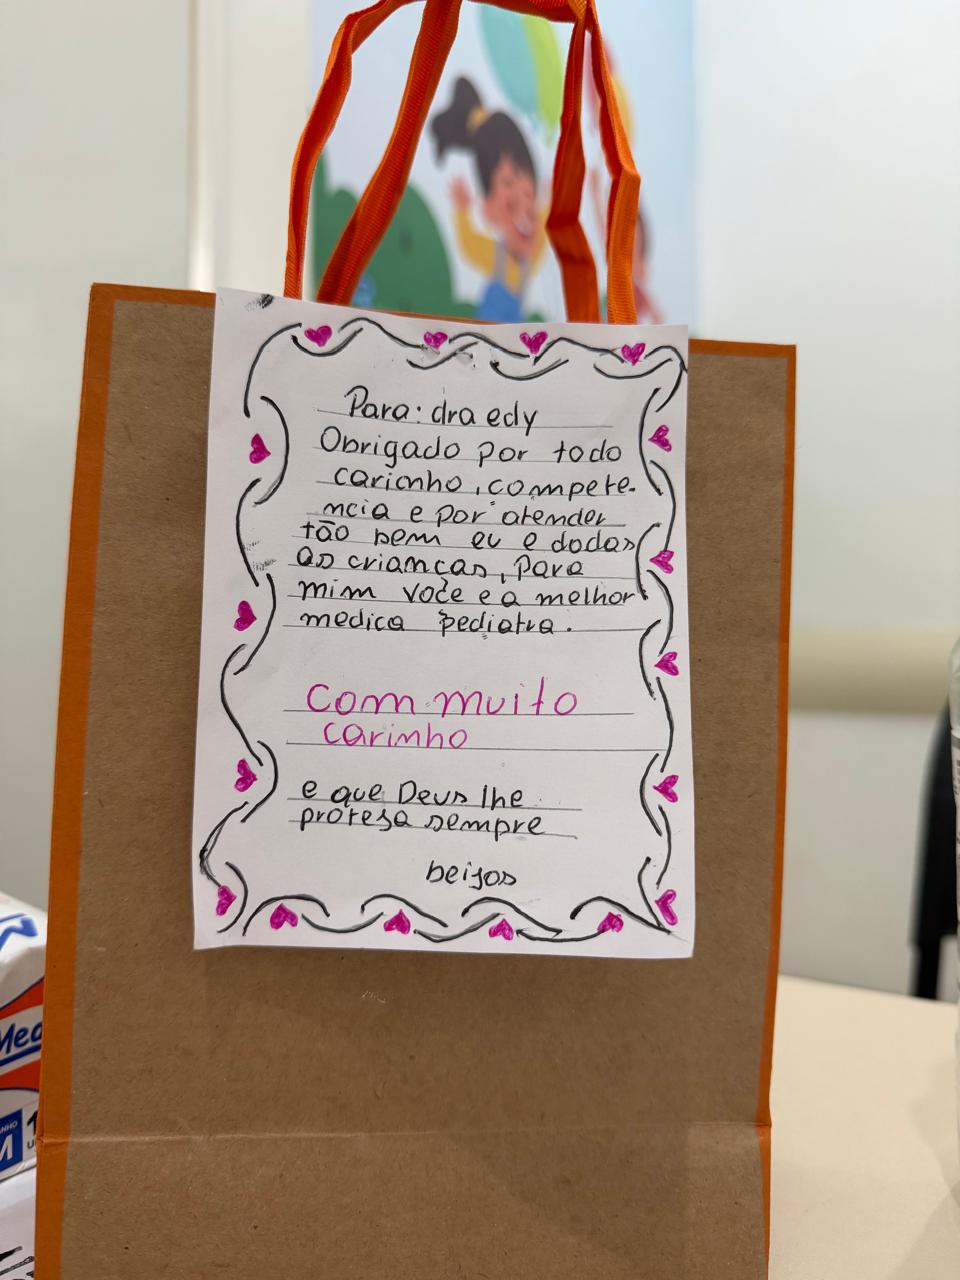 Para: dra edy
Obrigado por todo
carionho, compete-
ncia e por atender
tão bem eu e dodas
as criancas, para
mim você e a melhor
medica pediatra.
Com muito
carinho
e que Deus lhe
proteja sempre
beijos
Med
M